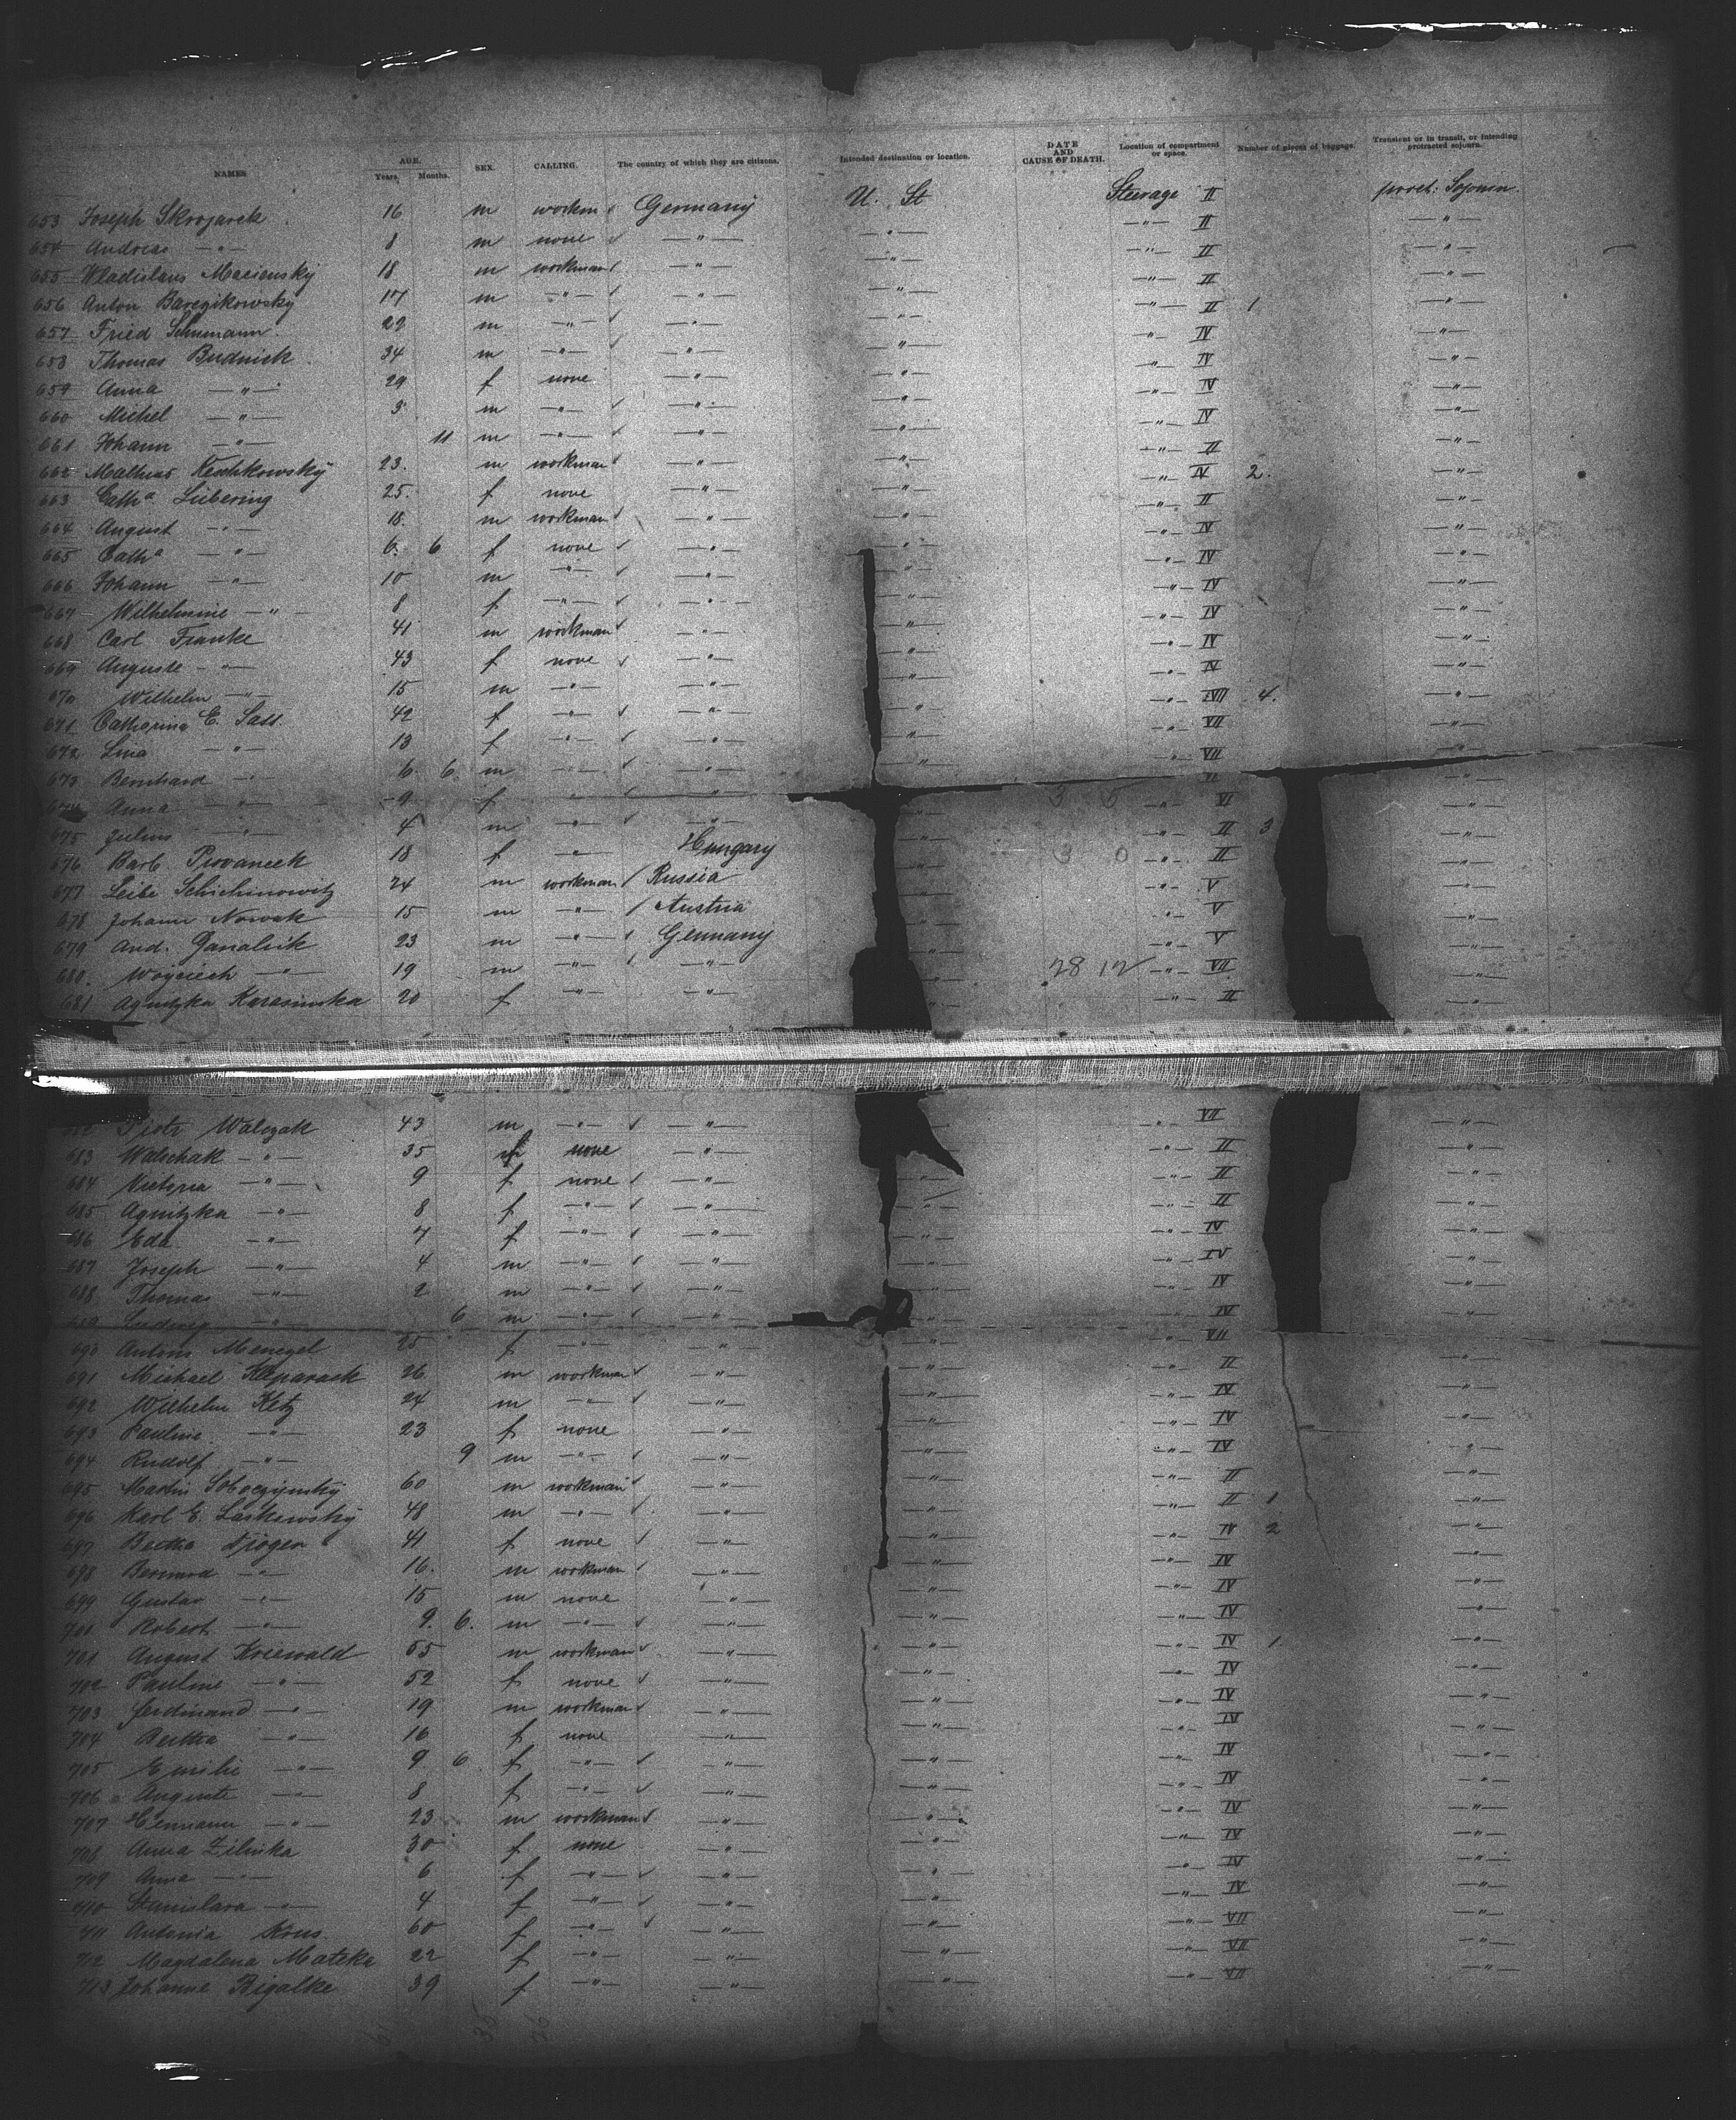 NAMES AGE. Years, Months. SEX. CALLING. The country of which they are citizens. Intended destination or location. DATE AND CAUSE OF DEATH. Location of compartment or space. Number of pieces of baggage. Transient or in transit, or intending protracted sojourn.
653 Joseph Skrojarek 16 m workm Germany U. St Steerage II prot: Sojourn.
654 Andreas —"— 8 m none —"— —"— —"— II —"—
655 Wladislaus Maciensky 18 m workman —"— —"— —"— II —"—
656 Anton 17 m —"— —"— —"— —"— II —"—
657 Fried Schumann 22 m —"— —"— —"— —"— II 1 —"—
658 Thomas Budnick 34 m —"— —"— —"— —"— IV —"—
659 Anna —"— 29 f none —"— —"— —"— IV —"—
660 Michel —"— 3 m —"— —"— —"— —"— IV —"—
661 Johann —"— 11 m —"— —"— —"— —"— IV —"—
662 Mathias 23. m workman —"— —"— —"— II —"—
663 Cath^a Lübering 25. f none —"— —"— —"— IV 2. —"—
664 August —"— 18. m workman —"— —"— —"— II —"—
665 Cath^a —"— 6. 6 f none —"— —"— —"— IV —"—
666 Johann —"— 10 m —"— —"— —"— IV —"—
667 Wilhelmine —"— 8 f —"— —"— —"— IV —"—
668 Carl Franke 41 m workman —"— —"— —"— IV —"—
669 Auguste —"— 43 f none —"— —"— —"— IV —"—
670 Wilhelm —"— 15 m —"— —"— —"— —"— IV —"—
671 Catharina E. Sass. 42 f —"— —"— —"— —"— VII 4. —"—
672 Lina —"— 13 f —"— —"— —"— —"— VII —"—
673 Bernhard —"— 6. 6 m —"— —"— —"— —"— VII —"—
674 Anna —"— 9 f —"— —"— —"— VI —"—
675 Julius —"— 4 m —"— —"— —"— —"— VI —"—
676 Barb. Provaneck 18 f —"— Hungary —"— —"— II 3 —"—
677 Leibe Schichinowitz 24 m workman Russia —"— —"— II —"—
678 Johann Nowak 15 m —"— Austria —"— —"— V —"—
679 And. Ganalsik 23 m —"— Germany —"— —"— V —"—
680. Wojciech —"— 19 m —"— —"— —"— —"— V —"—
681 Agnitzka Karasinska 20 f —"— —"— —"— 28 12 —"— VII —"—
—"— II
Walczak 43 m —"— —"— —"— VII —"—
683 Walschak —"— 35 f none —"— —"— II —"—
684 Victoria —"— 9 f none —"— —"— —"— II —"—
685 Agnitzka —"— 8 f —"— —"— —"— —"— II —"—
686 Eda —"— 7 f —"— —"— —"— —"— IV —"—
687 Joseph —"— 4 m —"— —"— —"— —"— IV —"—
688 Thomas —"— 2 m —"— —"— —"— IV —"—
689 Ludwig —"— 6 m —"— —"— —"— IV —"—
690 Menegel 25 f —"— —"— —"— —"— VII —"—
691 Michael 26 m workman —"— —"— —"— II —"—
692 Wilhelm Ketz 24 m —"— —"— —"— —"— IV —"—
693 Pauline —"— 23 f none —"— —"— —"— IV —"—
694 Rudolf —"— 9 m —"— —"— —"— —"— IV —"—
695 Martin Soboczijnsky 60 m workman —"— —"— —"— II —"—
696 Karl E. Laskewsky 48 m —"— —"— —"— —"— II 1 —"—
697 41 f none —"— —"— —"— IV 2 —"—
698 Bernard —"— 16. m workman —"— —"— —"— IV —"—
699 Gustav —"— 15 m none —"— —"— —"— IV —"—
700 Robert —"— 9. 6. m —"— —"— —"— —"— IV —"—
701 August Kreewald 55 m workman —"— —"— —"— IV 1 —"—
702 Pauline —"— 52 f none —"— —"— —"— IV —"—
703 Ferdinand —"— 19 m workman —"— —"— —"— IV —"—
704 Bertha —"— 16 f none —"— —"— —"— IV —"—
705 Emilie —"— 9 6 f —"— —"— —"— —"— IV —"—
706 Auguste —"— 8 f —"— —"— —"— —"— IV —"—
707 Hermann —"— 23 m workman —"— —"— —"— IV —"—
708 Anna Zilinka 30 f none —"— —"— —"— IV —"—
709 Anna —"— 6 f —"— —"— —"— —"— IV —"—
710 Stanislava —"— 4 f —"— —"— —"— —"— IV —"—
711 Antonia Krus. 60 f —"— —"— —"— —"— VII —"—
712 Magdalena Mateka 22 f —"— —"— —"— —"— VII —"—
713 Johanne Bigalke 39 f —"— —"— —"— VII —"—